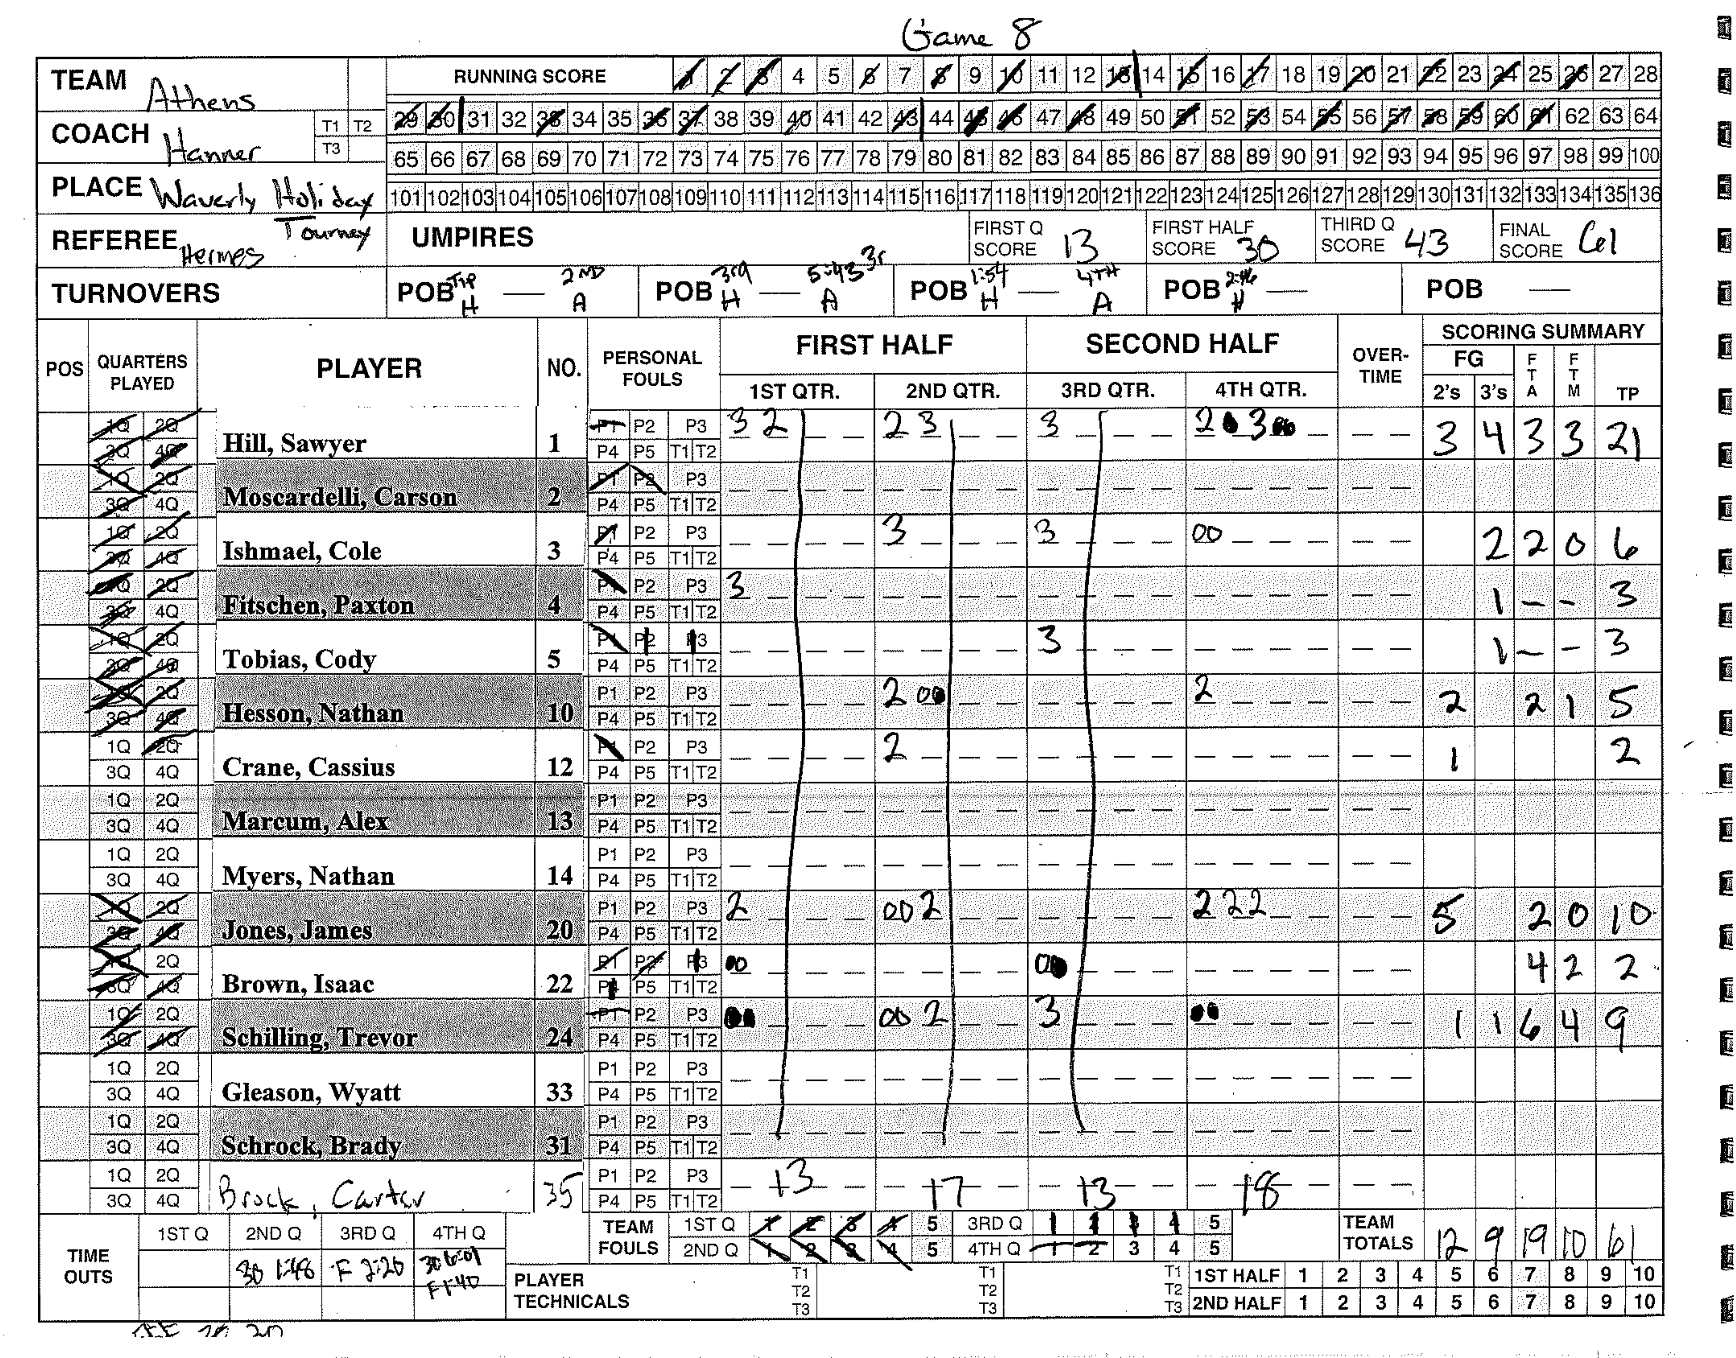 Game 8
TEAM Athens RUNNING SCORE 1 2 3 4 5 6 7 8 9 10 11 12 13 14 15 16 17 18 19 20 21 22 23 24 25 26 27 28
29 30 31 32 33 34 35 36 37 38 39 40 41 42 43 44 45 46 47 48 49 50 51 52 53 54 55 56 57 58 59 60 61 62 63 64
COACH Hanner T1 T2 T3
65 66 67 68 69 70 71 72 73 74 75 76 77 78 79 80 81 82 83 84 85 86 87 88 89 90 91 92 93 94 95 96 97 98 99 100
PLACE Waverly Holiday Tourney 101 102 103 104 105 106 107 108 109 110 111 112 113 114 115 116 117 118 119 120 121 122 123 124 125 126 127 128 129 130 131 132 133 134 135 136
REFEREE Hermes UMPIRES FIRST Q SCORE 13 FIRST HALF SCORE 30 THIRD Q SCORE 43 FINAL SCORE 61
TURNOVERS POB Tip H — 2ND A POB 3rd H — 5:43 3r A POB 1:54 H — 4TH A POB 2:46 H — POB —
POS QUARTERS PLAYED PLAYER NO. PERSONAL FOULS FIRST HALF SECOND HALF OVER-TIME SCORING SUMMARY
1ST QTR. 2ND QTR. 3RD QTR. 4TH QTR. FG 2's 3's FTA FTM TP
1Q 2Q 3Q 4Q Hill, Sawyer 1 P1 P2 P3 P4 P5 T1 T2 3 2 2 3 3 2 0 3 0 0 3 4 3 3 21
1Q 2Q 3Q 4Q Moscardelli, Carson 2 P1 P2 P3 P4 P5 T1 T2
1Q 2Q 3Q 4Q Ishmael, Cole 3 P1 P2 P3 P4 P5 T1 T2 3 3 00 2 2 0 6
1Q 2Q 3Q 4Q Fitschen, Paxton 4 P1 P2 P3 P4 P5 T1 T2 3 1 - - 3
1Q 2Q 3Q 4Q Tobias, Cody 5 P1 P2 P3 P4 P5 T1 T2 3 1 - - 3
1Q 2Q 3Q 4Q Hesson, Nathan 10 P1 P2 P3 P4 P5 T1 T2 2 00 2 2 2 1 5
1Q 2Q 3Q 4Q Crane, Cassius 12 P1 P2 P3 P4 P5 T1 T2 2 1 2
1Q 2Q 3Q 4Q Marcum, Alex 13 P1 P2 P3 P4 P5 T1 T2
1Q 2Q 3Q 4Q Myers, Nathan 14 P1 P2 P3 P4 P5 T1 T2
1Q 2Q 3Q 4Q Jones, James 20 P1 P2 P3 P4 P5 T1 T2 2 00 2 2 2 2 5 2 0 10
1Q 2Q 3Q 4Q Brown, Isaac 22 P1 P2 P3 P4 P5 T1 T2 00 00 4 2 2
1Q 2Q 3Q 4Q Schilling, Trevor 24 P1 P2 P3 P4 P5 T1 T2 00 00 2 3 00 1 1 6 4 9
1Q 2Q 3Q 4Q Gleason, Wyatt 33 P1 P2 P3 P4 P5 T1 T2
1Q 2Q 3Q 4Q Schrock, Brady 31 P1 P2 P3 P4 P5 T1 T2
1Q 2Q 3Q 4Q Brock, Carter 35 P1 P2 P3 P4 P5 T1 T2 13 17 13 18
TIME OUTS 1ST Q 2ND Q 3RD Q 4TH Q TEAM FOULS 1ST Q 1 2 3 4 5 3RD Q 1 2 3 4 5 TEAM TOTALS 12 9 19 10 61
2ND Q 1 2 3 4 5 4TH Q 1 2 3 4 5
30 1:48 F 2:20 30 6:01 F 1:40
PLAYER TECHNICALS T1 T2 T3 T1 T2 T3 T1 T2 T3 1ST HALF 1 2 3 4 5 6 7 8 9 10
2ND HALF 1 2 3 4 5 6 7 8 9 10